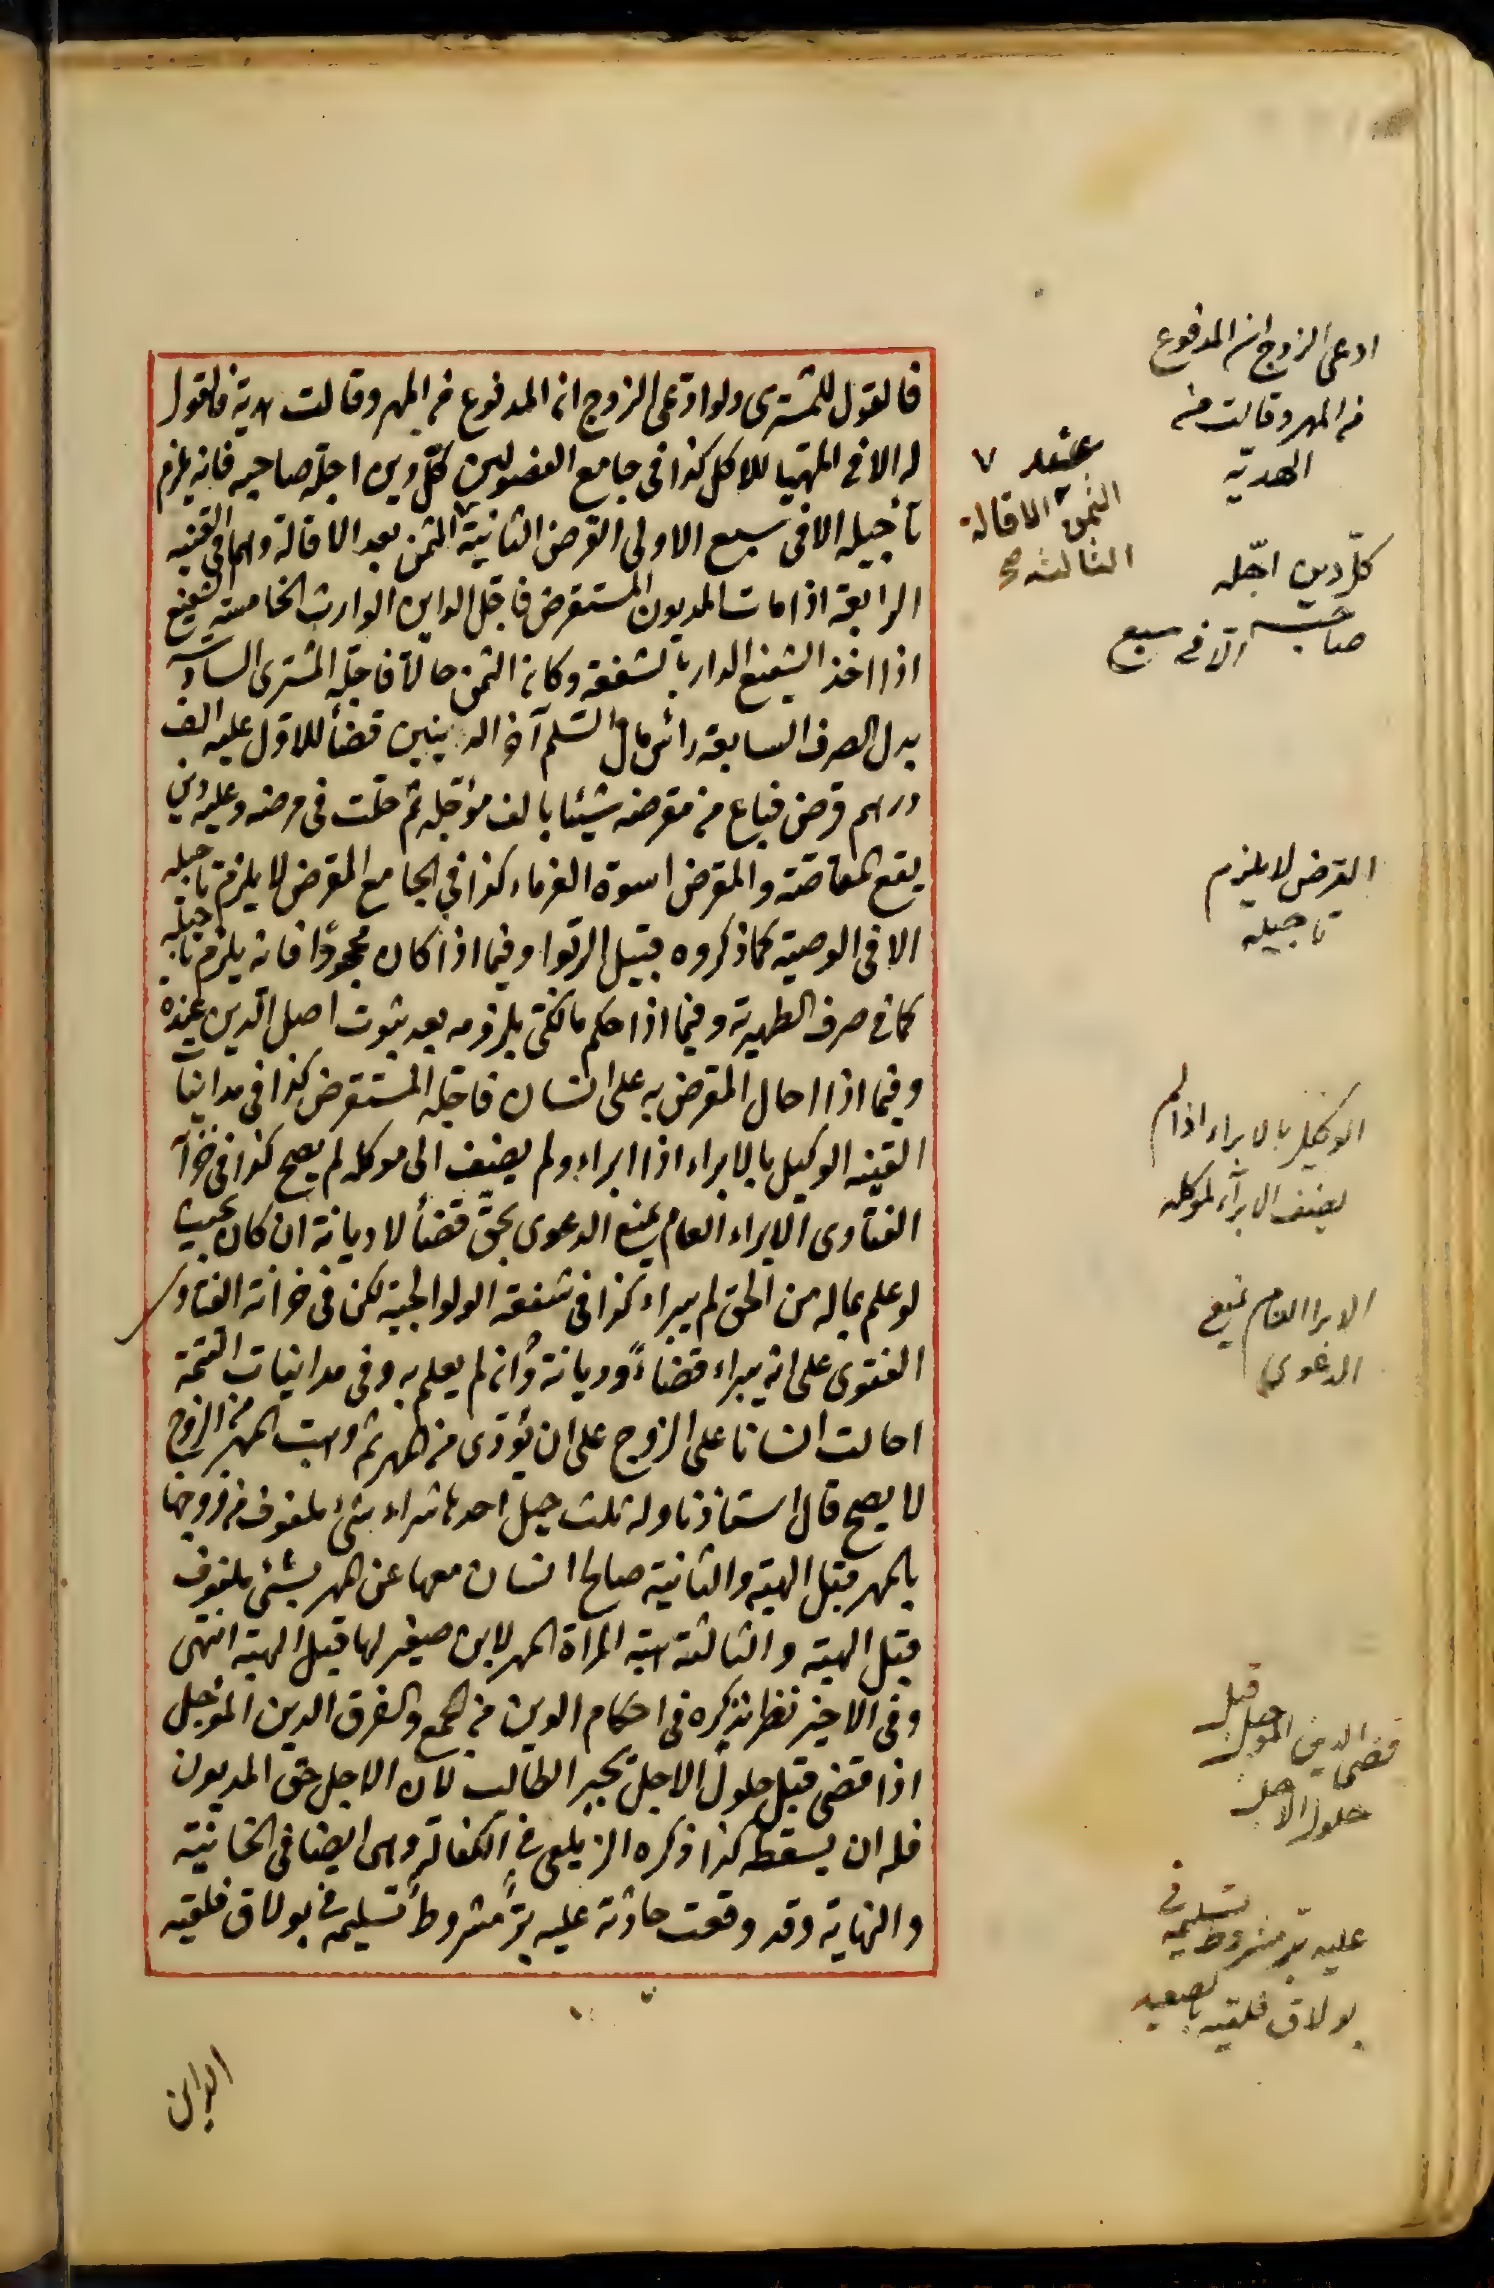 فالقول للمشترى ولو ادّعى الزوج انه المدفوع من المهر وقالت هدية فالقول
له الا فى المهيا للاكل كذا فى جامع الفصولين كلّ دين اجله صاحبه فانه يلزم
تأجيله الا فى سبع الاولى القرض الثانية الثمن بعد الاقالة وهما فى القنيه
الرابعة اذا مات المديون المستقرض فاجّل الداين الوارث الخامسة الشفيع
اذا اخذ الشفيع الدار بالشفعة وكان الثمن حالاً فاجله المشترى السادسة
بدل الصرف السابعة رأس مال السّلم آخر الدينين قضأ للاوّل عليه الف
درهم قرض فباع من مقرضه شيئا بالف مؤجله ثم حلّت فى مرضه وعليه دين
يقع المقاصّة والمقرض اسوة الغرماء كذا فى الجامع القرض لا يلزم تاجيله
الا فى الوصية كما ذكروه قبيل الربوا وفيما اذا كان مجحودًا فانه يلزم تاجيله
كما فى صرف الظهيرية وفيما اذا حكم مالكىّ بلزومه بعد ثبوت اصل الدين عنده
وفيما اذا احال المقرض به على انسان فاجّله المستقرض كذا فى مداينات
القنيه الوكيل بالابراء اذا ابراء ولم يضف الى موكله لم يصح كذا فى خزانة
الفتاوى الابراء العام يمنع الدعوى بحقّ قضأ لا ديانة ان كان بحيث
لو علم بماله من الحق لم يبراء كذا فى شفعة الولوالجية لكن فى خزانة الفتاو
الفتوى على انه يبراء قضاءً وديانة وان لم يعلم به وفى مداينات القنية
احالت انسانا على الزوج على ان يؤدّى من المهر ثم وهبت المهر من الزوج
لا يصح قال استاذنا وله ثلث حيل احدها شراء شئ ملفوف من زوجها
بالمهر قبل الهبة والثانية صالح انسان معها عن المهر بشئ ملفوف
قبل الهبة والثالثة هبة المراة المهر لابن صغير لها قبل الهبة انتهى
وفى الاخير نظر نذكره فى احكام الدين من الجمع والفرق الدين المؤجل
اذا قضى قبل حلول الاجل يجبر الطالب لان الاجل حق المديون
فله ان يسقطه كذا ذكره الزيلعى فى الكفالة وهى ايضا فى الخانية
والنهاية وقد وقعت حادثة عليه برّ مشروط تسليمه فى بولاق فلقيه
الداين
ادعى الزوج ان المدفوع
من المهر وقالت من
الهدية
عند
الثمن الاقالة
الثالثة صح
كلّ دين اجّله
صاحبه الا فى سبع
القرض لا يلزم
تاجيله
الوكيل بالابراء اذا لم
يضف الابرآء لموكله
الابرا العام يمنع
الدعوى
قضى الدين المؤجل قبل
حلول الاجل
عليه برّ مشروط تسليمه فى
بولاق فلقيه بالصعيد